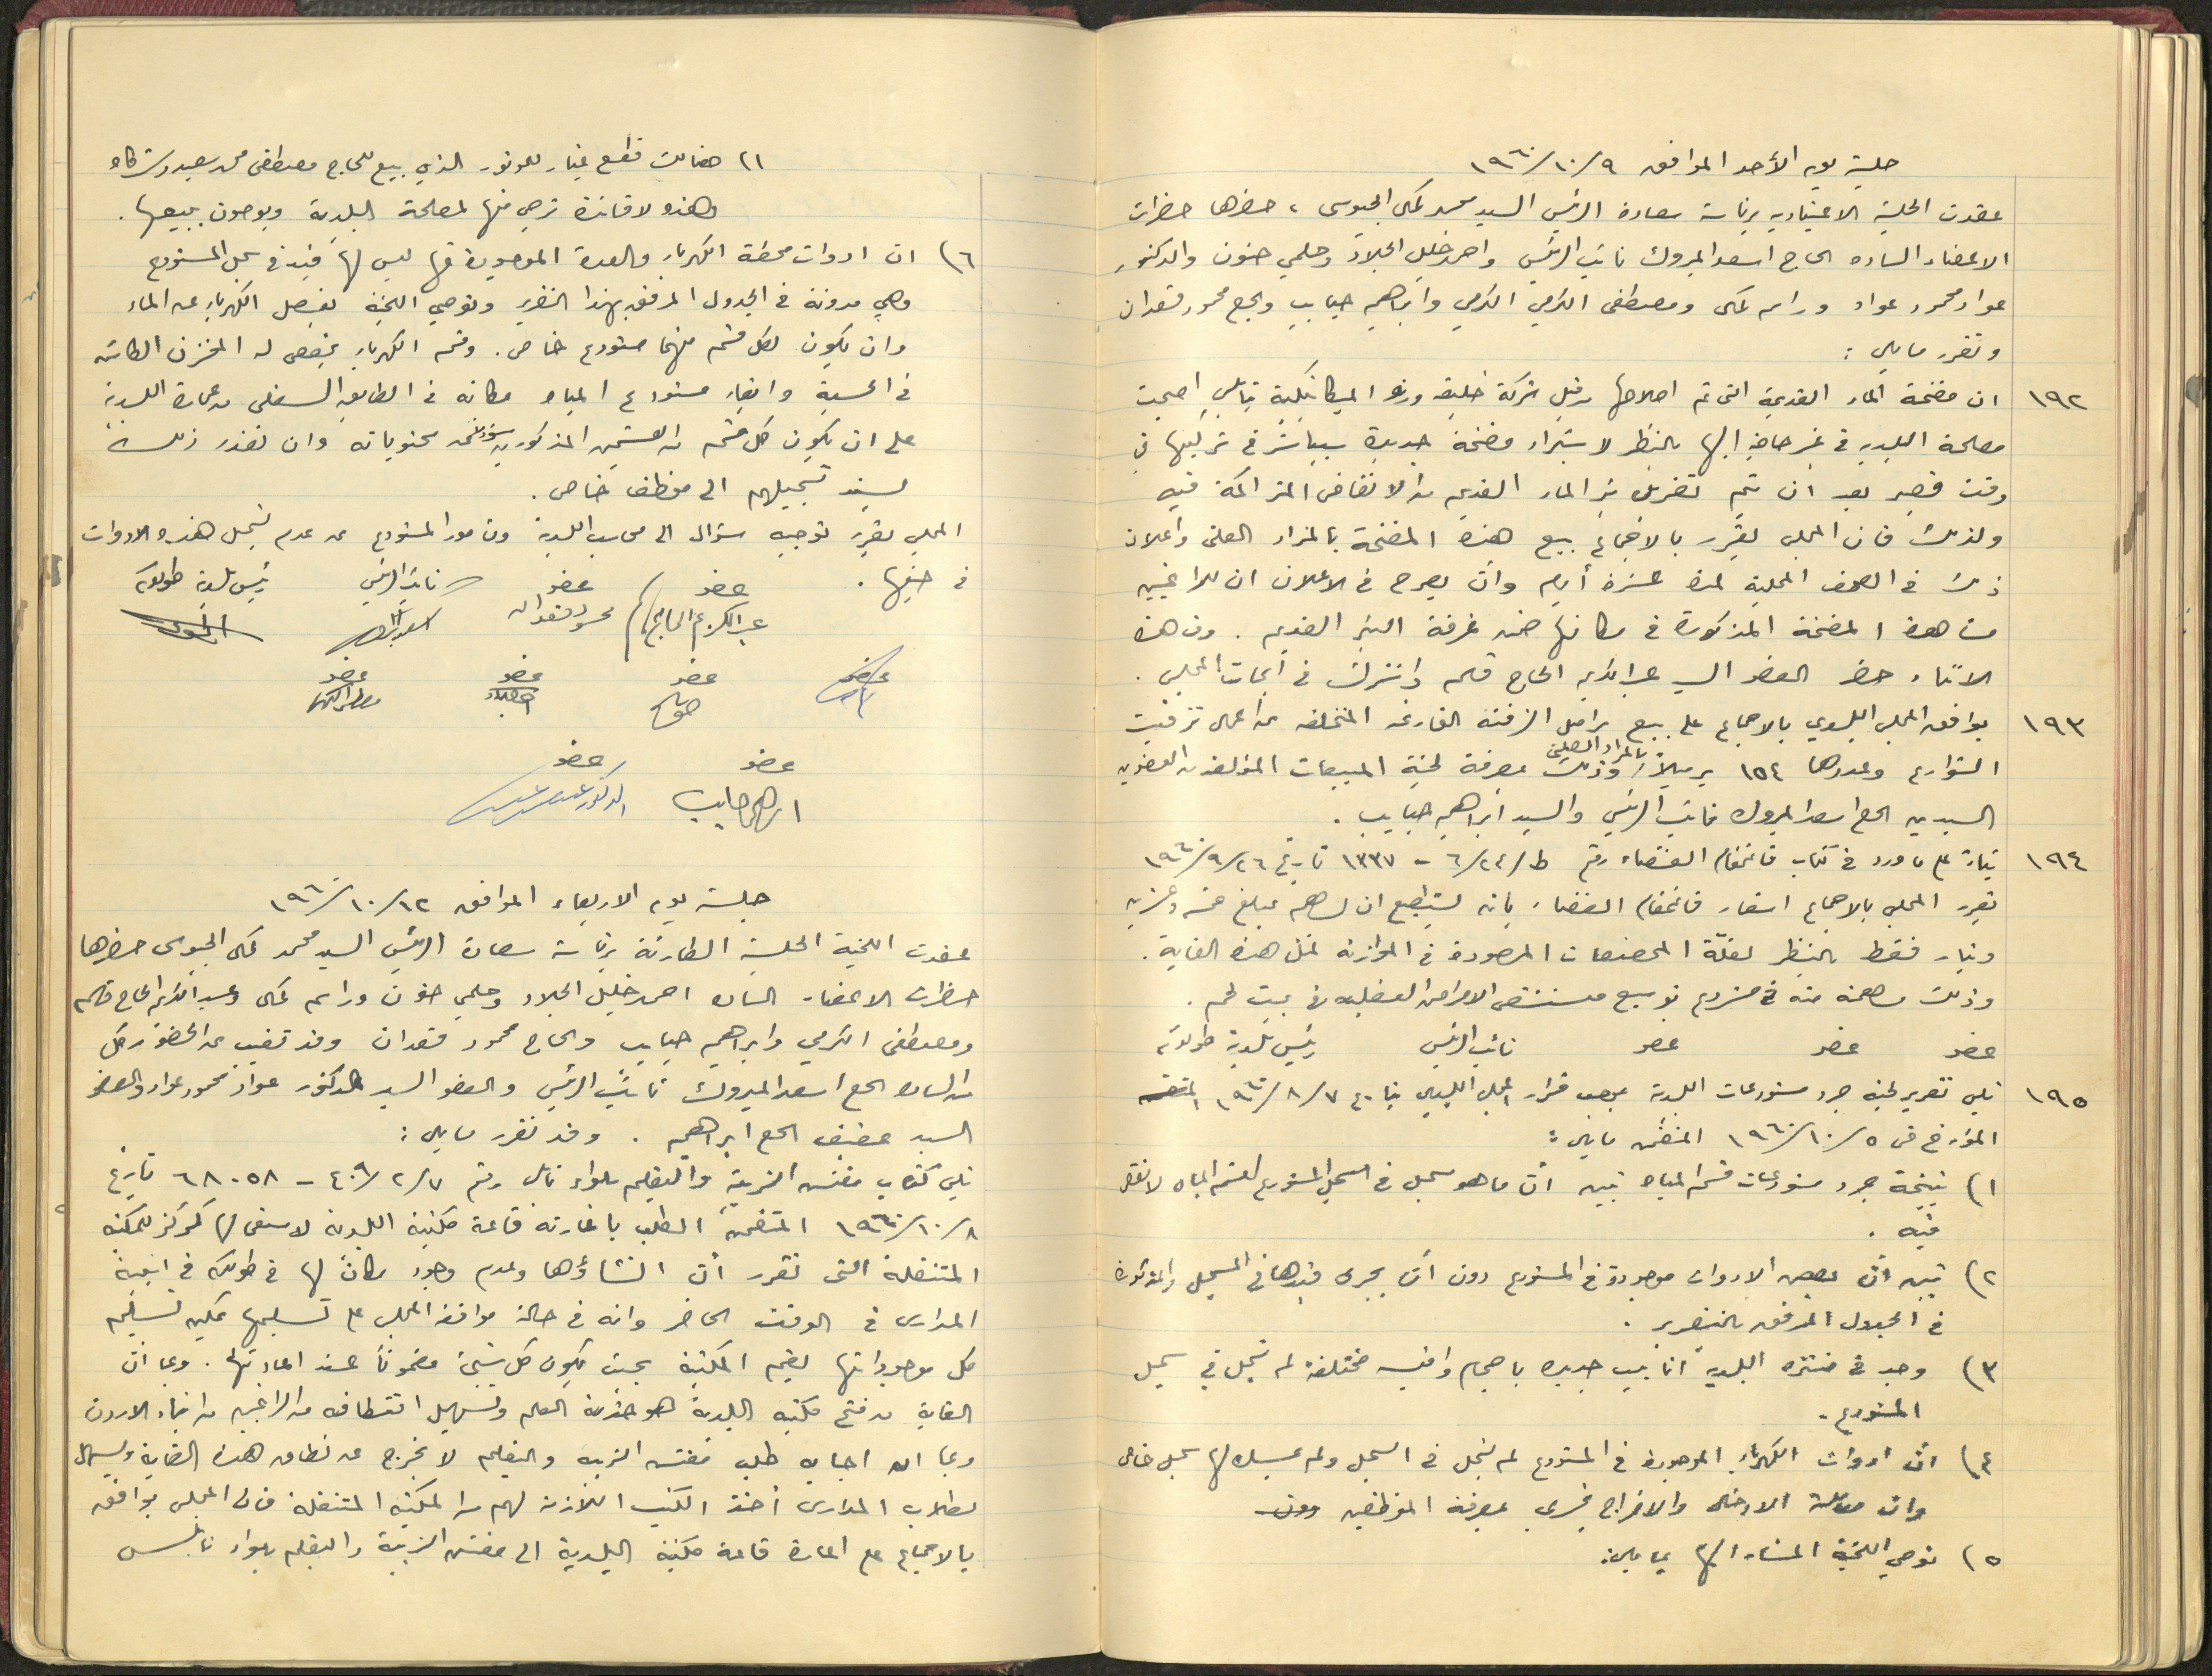 جلسة يوم الأحد الموافق ٩/١٠/١٩٦٠
عقدت الجلسة الاعتيادية برئاسة سعادة الرئيس السيد محمد كمال الجيوسي ، حضرها حضرات
الاعضاء الساده الحاج اسعد المبروك نائب الرئيس واحمد خليل الجلاد وحلمي حنون والدكتور
عواد محمود عواد وراسم كمال ومصطفى الكرمي وابراهيم حبايب والحاج محمود قعدان
وتقرر ما يلي :
١٩٢ ان مضخة الماء القديمة التي تم اصلاحها من قبل شركة خليفه ورنو الميكانيكية بنابلس اصبحت
مصلحة البلديه في غير حاجة اليها بالنظر لاشتراء مضخة جديدة سيباشر في تركيبها في
وقت قصير بعد ان يتم تنزيل بئر الماء القديم من الانقاض المتراكمة فيه
ولذلك فان المجلس يقرر بالاجماع بيع هذه المضخة بالمزاد العلني واعلان
ذلك في الصحف المحلية لمدة عشرة أيام وان يصرح في الاعلان ان للراغبين
مشاهدة المضخة المذكورة في مكانها ضمن غرفة البئر القديم . وفي هذه
الاثناء حضر العضو السيد عبد الكريم الحاج قاسم واشترك في ابحاث المجلس .
١٩٣ يوافق المجلس البلدي بالاجماع على بيع براميل الزفتة الفارغه المتخلفه عن اعمال تزفيت
الشوارع وعددها ١٥٤ برميلاً بالمزاد العلني وذلك بمعرفة لجنة المبيعات المؤلفة من العضوين
السيدين الحاج اسعد المبروك نائب الرئيس والسيد ابراهيم حبايب .
١٩٤ بناءً على ما ورد في كتاب قائمقام القضاء رقم ط/٢٤/٦ - ١٣٣٧ تاريخ ٢٦/٩/١٩٦٠
تقرر المجلس بالاجماع اشعار قائمقام القضاء بانه يستطيع ان يساهم بمبلغ خمسة وعشرين
دينار فقط بالنظر لقلّة المخصصات المرصودة في الموازنة لمثل هذه الغاية .
وذلك مساهمة منه في مشروع توسيع مستشفى الامراض العقلية في بيت لحم .
عضو عضو عضو نائب الرئيس رئيس بلدية طولكرم
١٩٥ تلي تقرير لجنة جرد مستودعات البلدية بموجب قرار المجلس البلدي بتاريخ ٧/٨/١٩٦٠
المؤرخ في ٥/١٠/١٩٦٠ المتضمن ما يلي :
١) نتيجة جرد مستودعات قسم المياه تبين أن ما هو مسجل في سجل المستودع لقسم المياه لا نقص
فيه .
٢) تبين أن بعض الادوات موجودة في المستودع دون أن يجرى قيدها في السجل والمذكورة
في الجدول المرفق بالتقرير .
٣) وجد في منتزه البلدية أنابيب جديده باحجام واقيسه مختلفة لم تسجل في سجل
المستودع .
٤) ان ادوات الكهرباء الموجودة في المستودع لم تسجل في السجل ولم يمسك لها سجل خاص
وان معاملة الادخال والاخراج تجري بمعرفة الموظفين
٥) توصي اللجنة المشار اليها بما يلي :
١) هنالك قطع غيار للموتور الذي بيع للحاج مصطفى محمد سعيد وشركاه
وهذه لا فائدة ترجى منها لمصلحة البلدية ويوصون ببيعها .
٦) ان ادوات محطة الكهرباء والعدة الموجودة فيها ليس لها قيد في سجل المستودع
وهي مدونة في الجدول المرفق بهذا التقرير وتوصي اللجنة بفصل الكهرباء عن الماء
وان يكون لكل قسم منهما مستودع خاص . وقسم الكهرباء يخصص له المخزن الكائن
في الحسبة وابقاء مستودع المياه مكانه في الطابق السفلي من عمارة البلدية
على ان يكون كل قسم من القسمين المذكورين محتوياته وان تعذر ذلك
يسند تسجيلهم الى موظف خاص .
المجلس يقرر توجيه سؤال الى محاسب البلدية ومأمور المستودع عن عدم تسجيل هذه الادوات
في حينها .
عضو عضو نائب الرئيس رئيس بلدية طولكرم
عبد الكريم الحاج محمود قعدان اسعد المبروك
عضو عضو عضو عضو
عضو عضو
ابراهيم حبايب الدكتور
جلسة يوم الاربعاء الموافق ١٢/١٠/١٩٦٠
عقدت اللجنة الجلسة الطارئة برئاسة سعادة الرئيس السيد محمد كمال الجيوسي حضرها
حضرات الاعضاء الساده احمد خليل الجلاد وحلمي حنون وراسم كمال وعبد الكريم الحاج قاسم
ومصطفى الكرمي وابراهيم حبايب والحاج محمود قعدان وقد تغيب عن الحضور كل
من الساده الحاج اسعد المبروك نائب الرئيس والعضو السيد الدكتور عواد محمود عواد والعضو
السيد عفيف الحاج ابراهيم . وقد تقرر ما يلي :
تلي كتاب مفتش التربية والتعليم بلواء نابلس رقم ٤٠٩/٢/٧ - ٦٨٠٥٨ تاريخ
٨/١٠/١٩٦٠ المتضمن الطلب باعارته قاعة مكتبة البلدية لاستعمالها كمركز للمكتبة
المتنقلة التي تقرر أن انشاؤها وعدم وجود مكان لها في طولكرم في ابنية
المدارس في الوقت الحاضر وانه في حالة موافقة المجلس على تسليمها يمكن تسليم
كل موجوداتها لقيم المكتبة بحيث يكون كل شيئ مضموناً عند اعادتها . وبما ان
الغاية من فتح مكتبه البلدية هو خدمة العلم وتسهيل اقتطافه من الراغبين من ابناء الاردن
وبما ان اجابه طلب مفتش التربيه والتعليم لا يخرج عن نطاق هذه الغاية ويسهل
لطلاب المدارس أخذ الكتب اللازمة لهم من المكتبه المتنقلة فان المجلس يوافق
بالاجماع على اعارة قاعة مكتبة البلدية الى مفتش التربية والتعليم بلواء نابلس